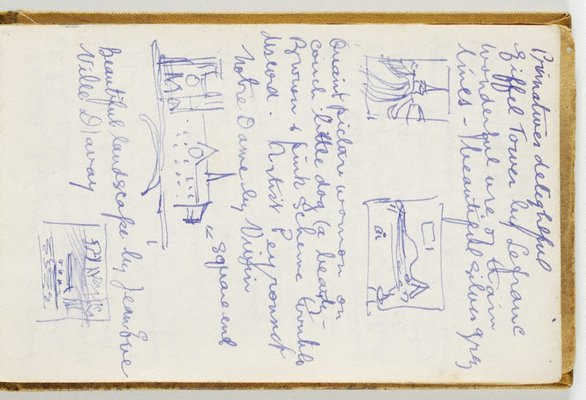 Primatives delightful
Eiffel Tower by Lefranc
wonderful use of thin
lines - beautiful silvergrey
Quaint picture woman on
couch. little dog (a beauty -
Brown & pink scheme
discord. Artist Peyronnet
Notre Dame by Vivin
< Square end
Beautiful landscape by Jean Eve
Ville D'avray